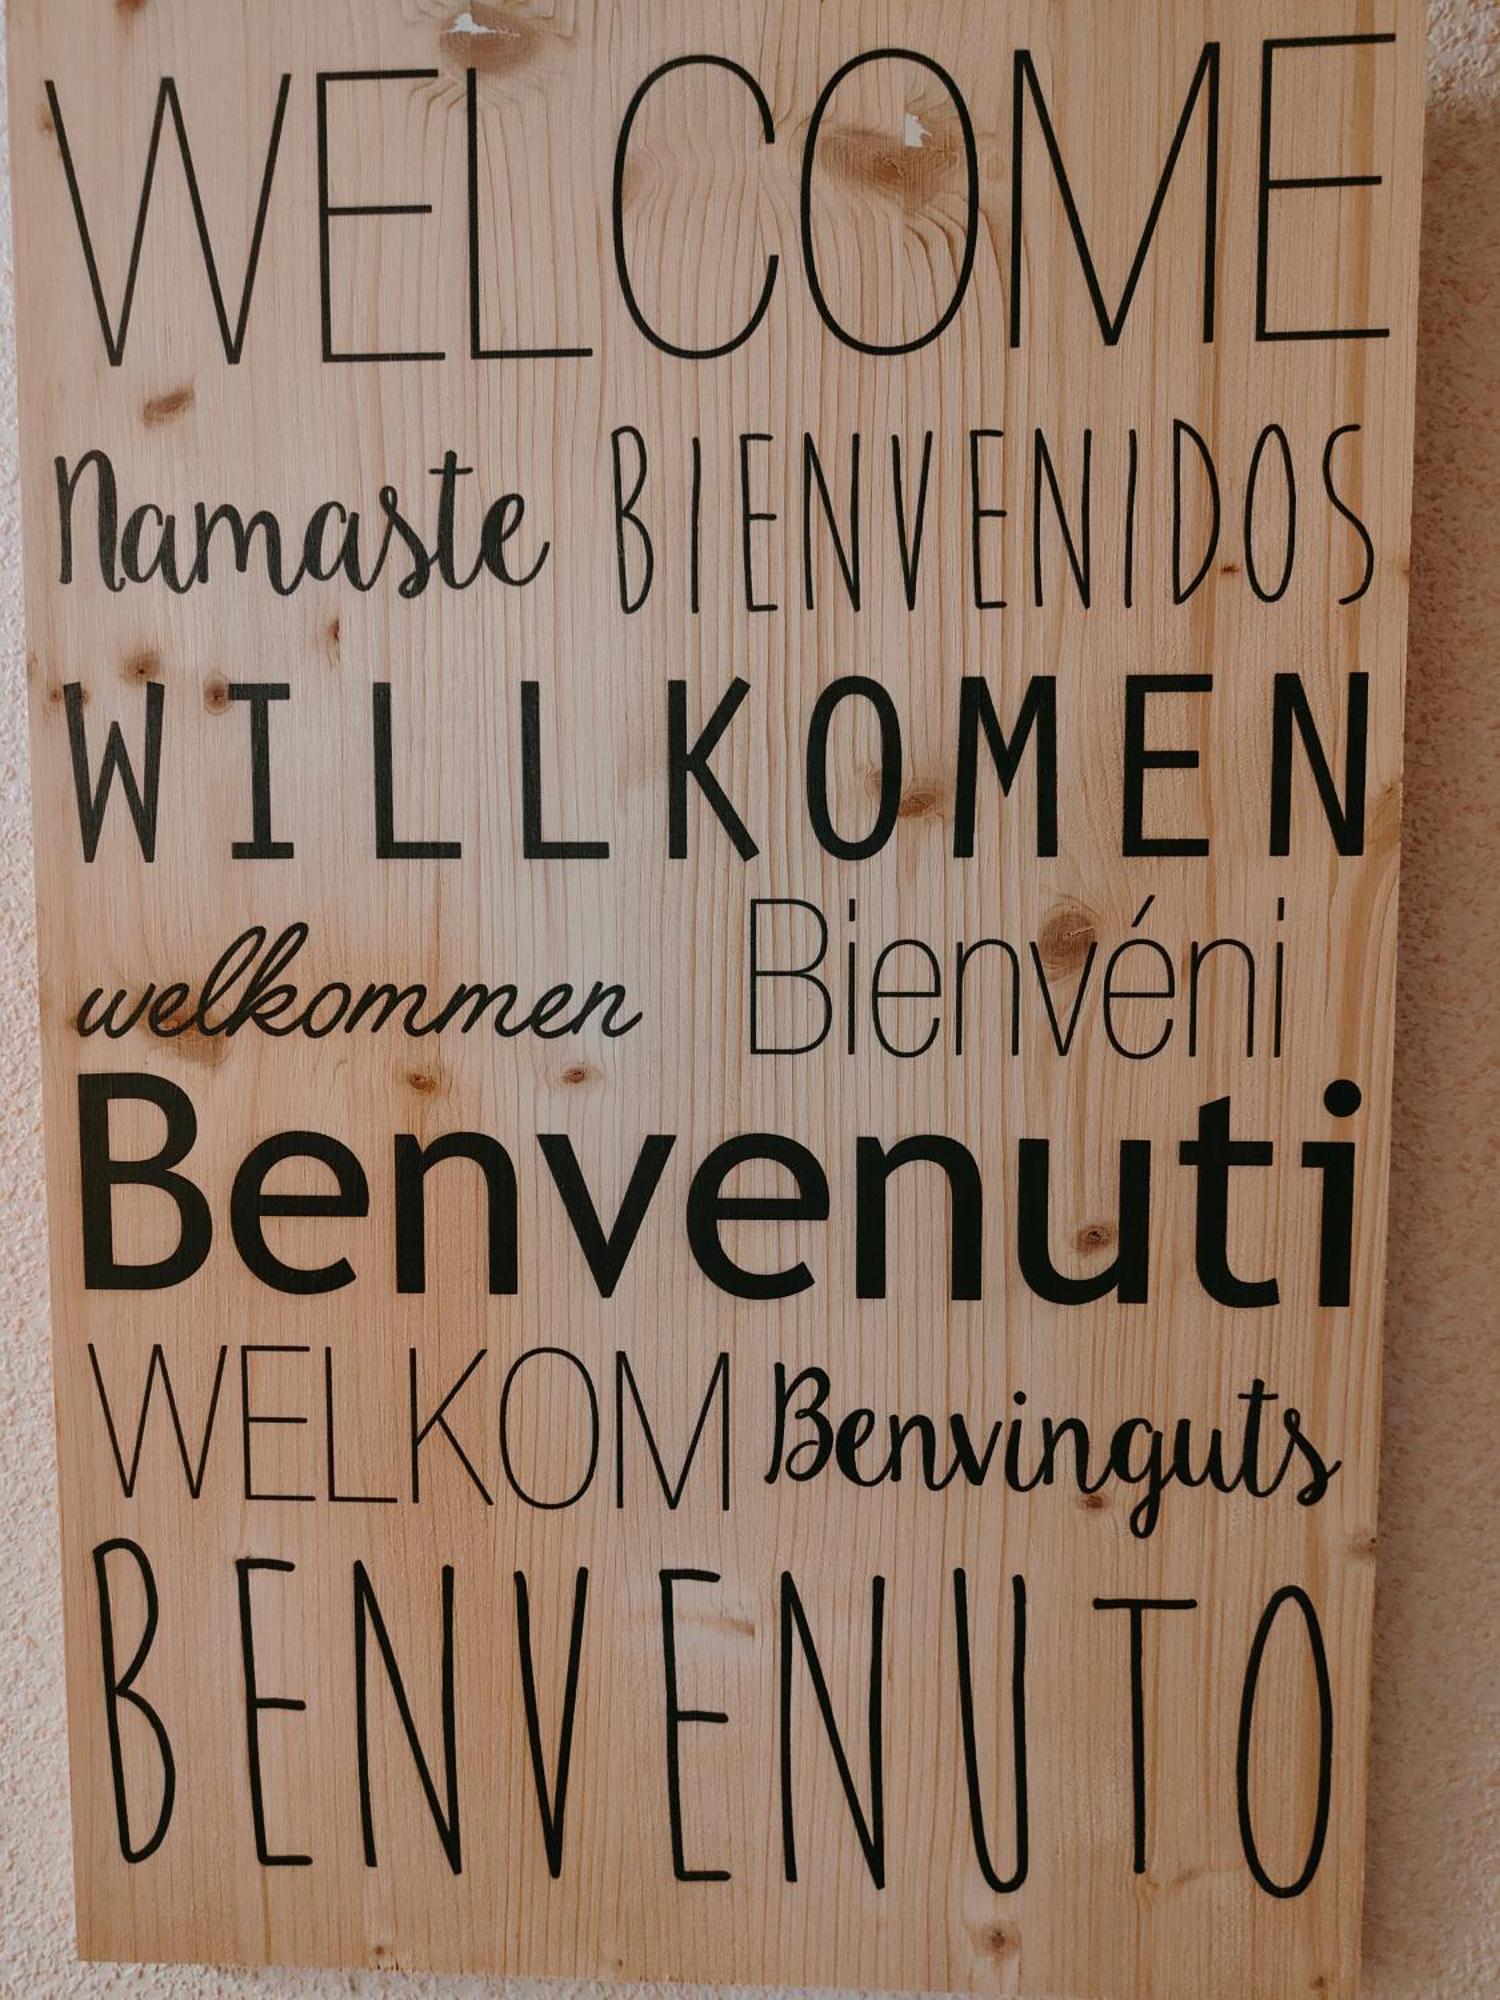 WELCOME
Namaste BIENVENIDOS
WILLKOMEN
welkommen Bienvéni
Benvenuti
WELKOM Benvinguts
BENVENUTO